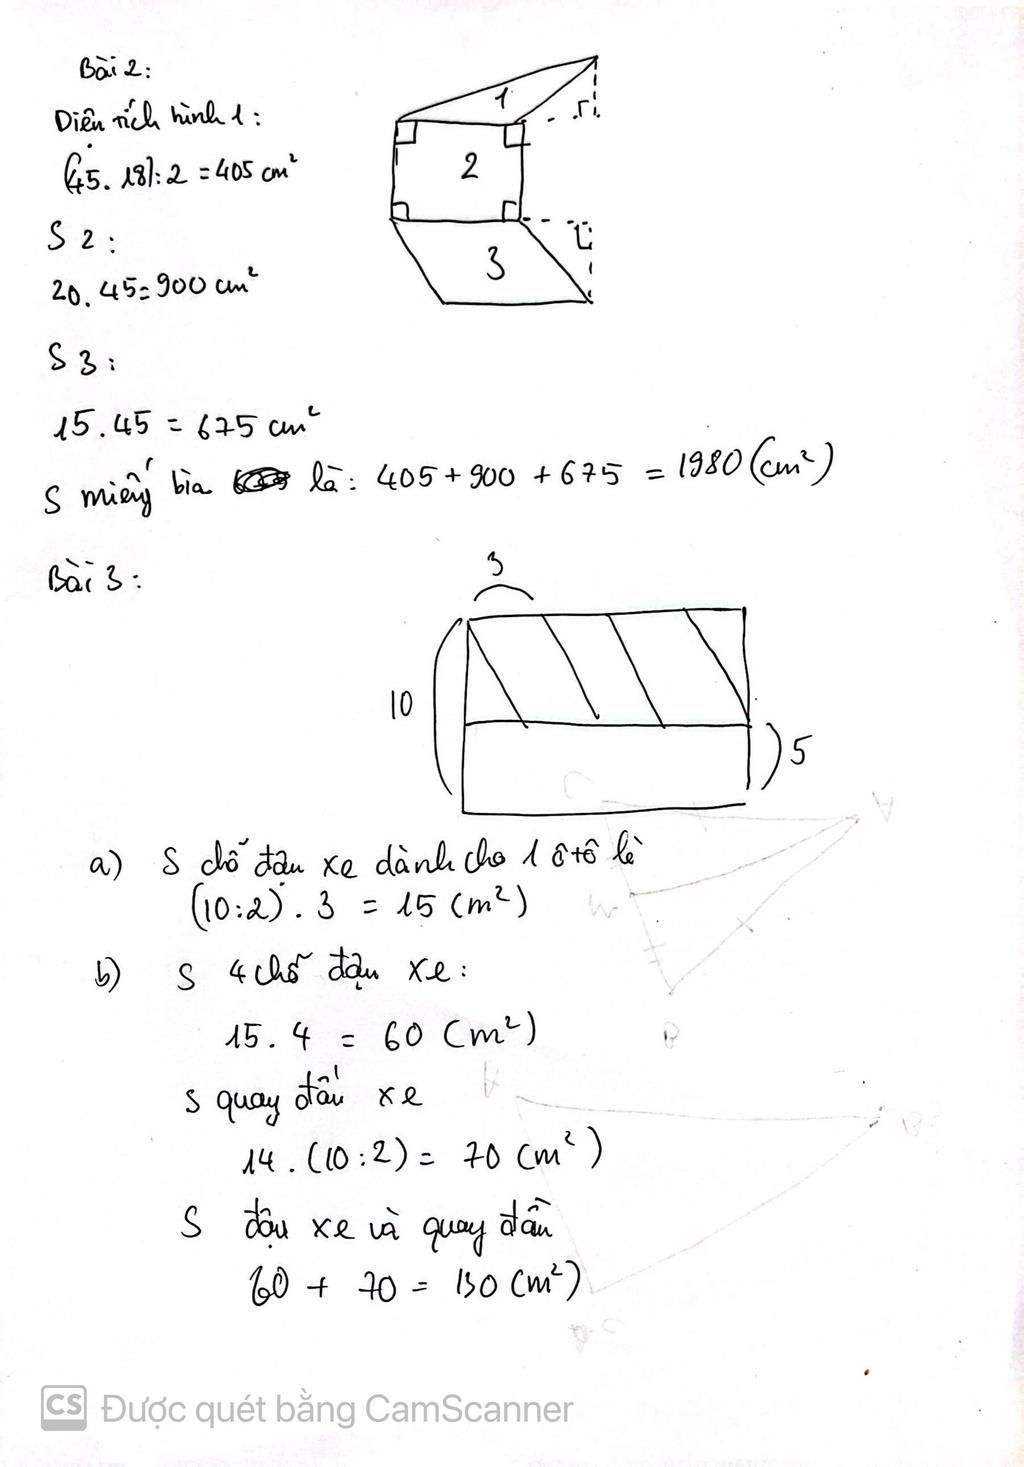 Bài 2:
Diện tích hình 1:
(45.18):2 = 405 cm²
1
2
3
S 2:
20.45 = 900 cm²
S 3:
15.45 = 675 cm²
S miếng bìa là: 405 + 900 + 675 = 1980 (cm²)
Bài 3:
3
10
5
a) S chỗ đậu xe dành cho 1 ô tô là
(10:2).3 = 15 (m²)
b) S 4 chỗ đậu xe:
15.4 = 60 (m²)
S quay đầu xe
14.(10:2) = 70 (m²)
S đậu xe và quay đầu
60 + 70 = 130 (m²)
CS Được quét bằng CamScanner